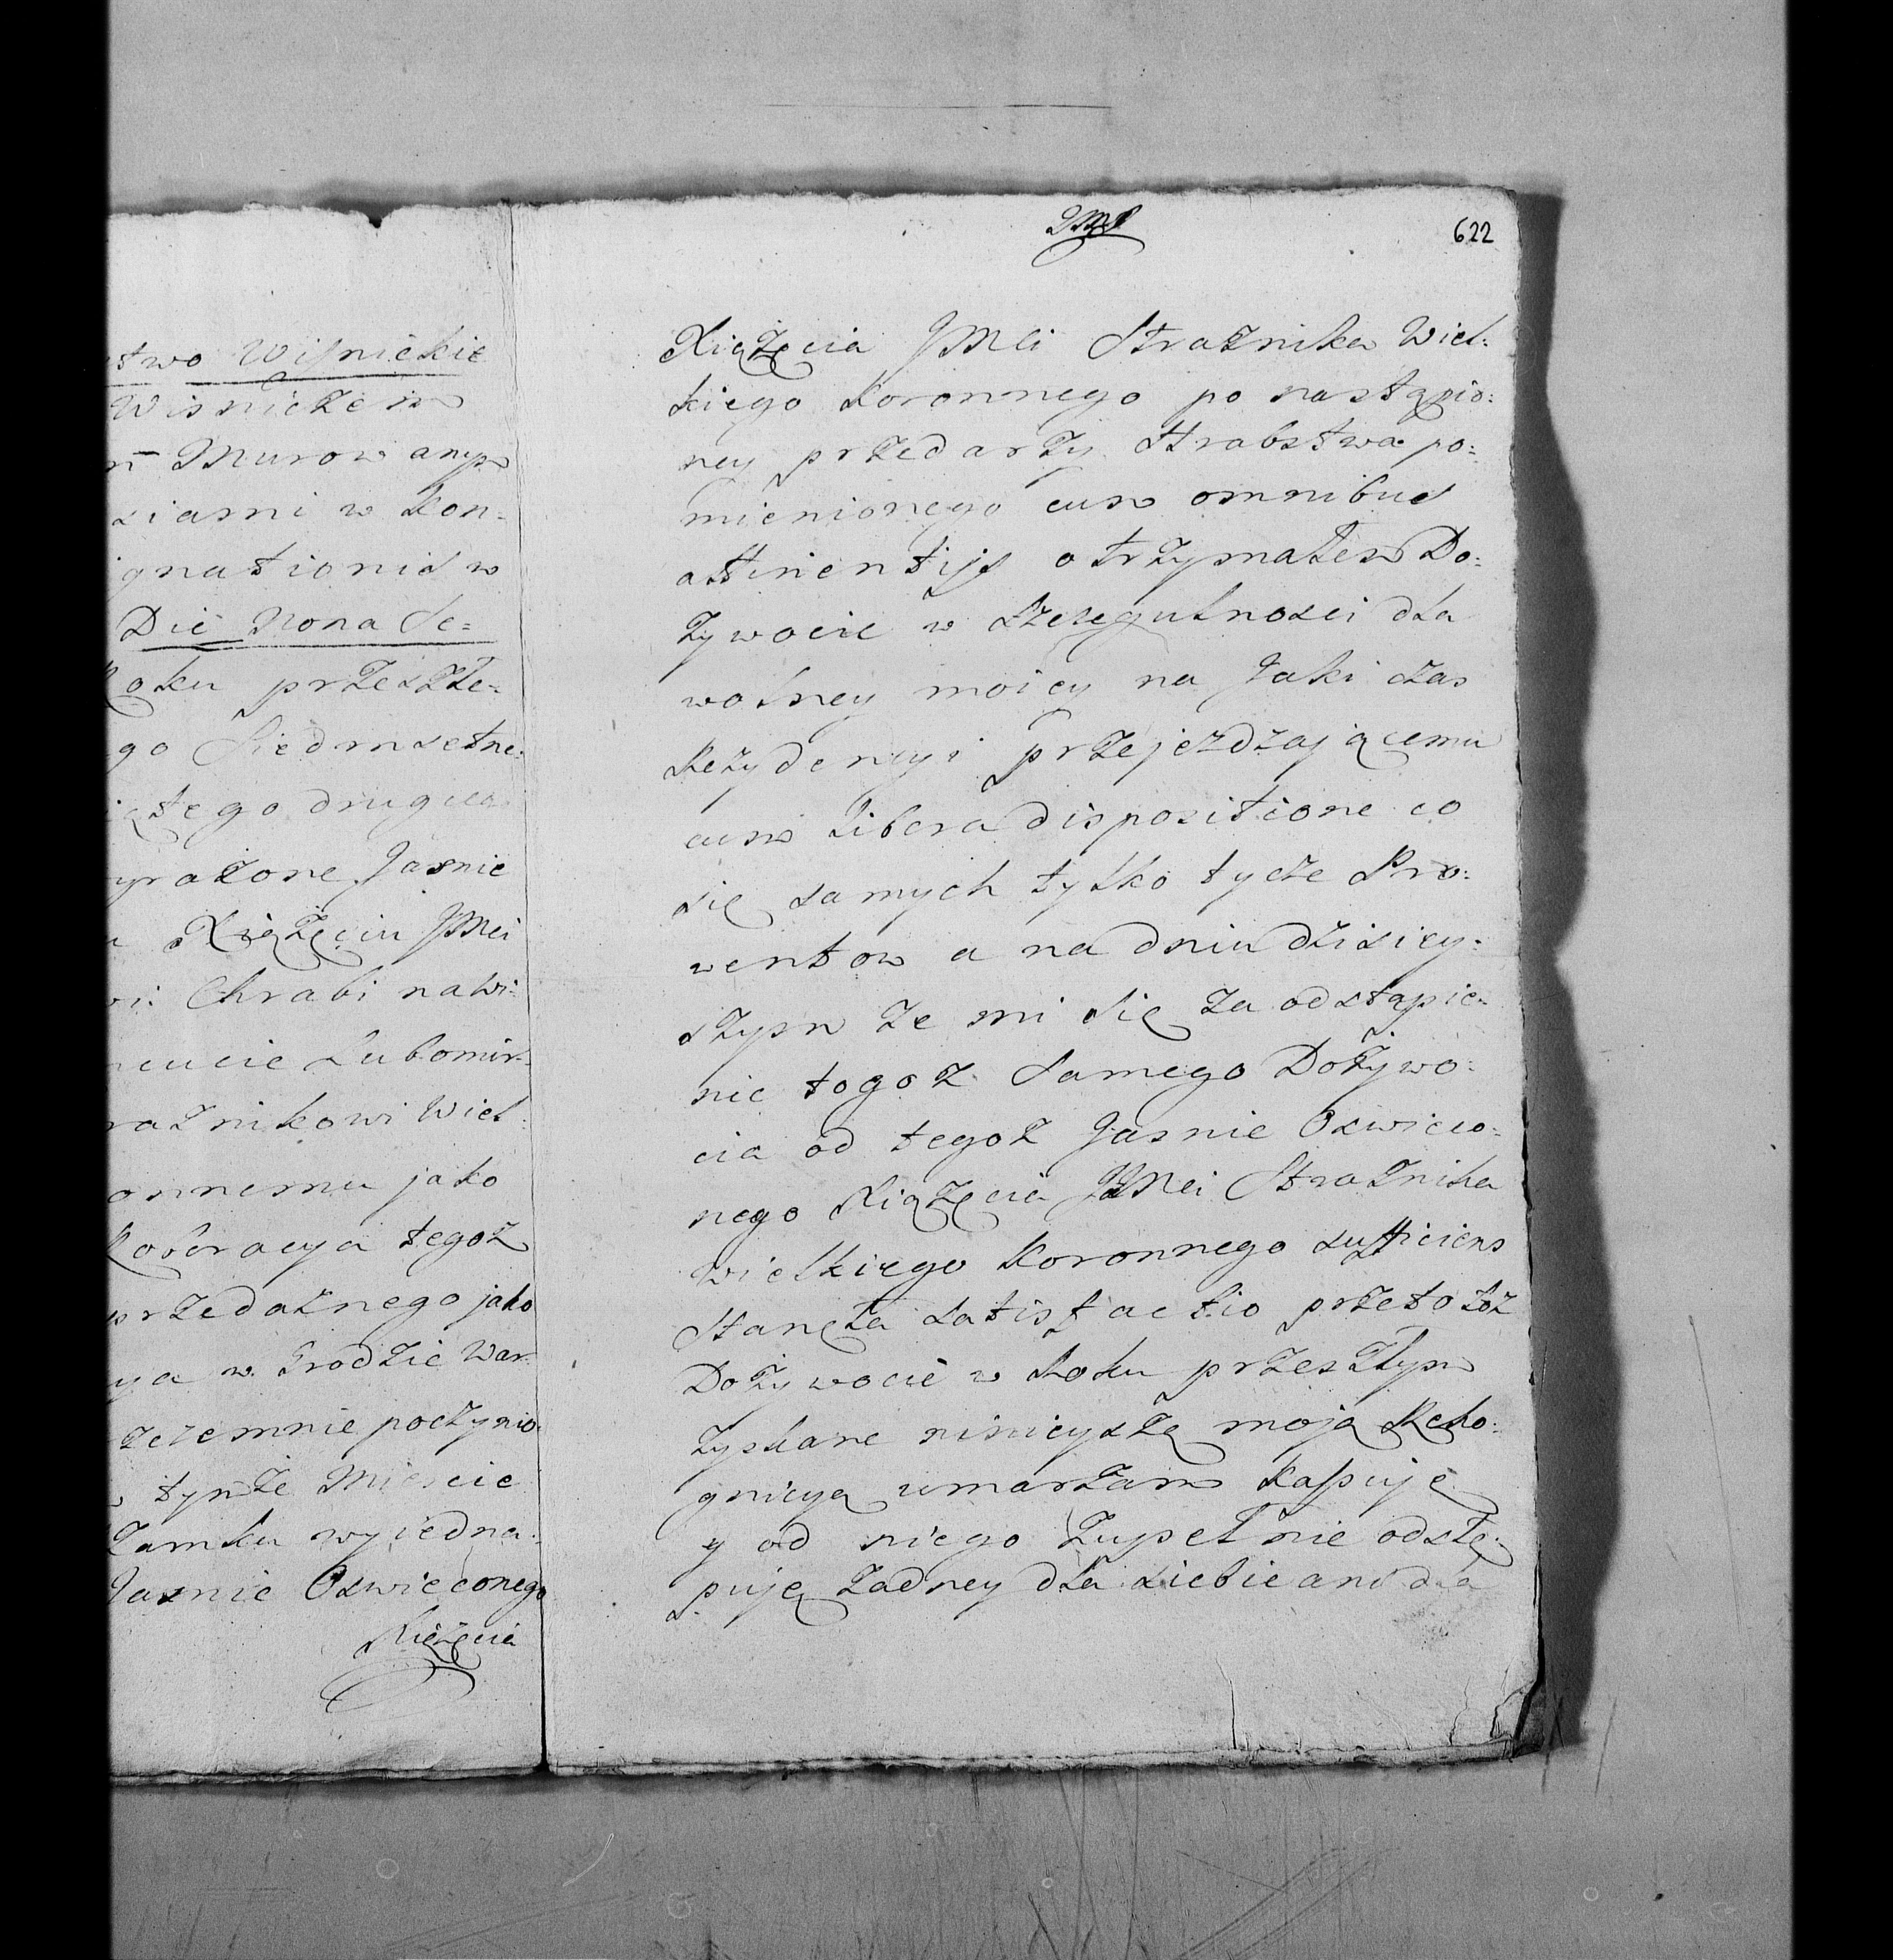 stwo Wisnickie
Wisniczem
Murowanym
ziami w Kon-
gnationis w
Die Nona Se=
Roku przeszłe-
go Siedmsetne-
iętego drugiego
yrażone Jasnie
Xiążęciu JMci
Chrabi na Wi-
ncucie Lubomir-
rażnikowi Wiel-
onnemu jako
Roboracya tegoż
przedażnego jako
ya w Grodzie War-
zezemnie poczynio-
tymże Miescie
Zamku wyiedna-
Jasnie Oswieconego
Xiążęcia
622
Xiążęcia JMci Strażnika Wiel-
kiego Koronnego po nastąpio-
ney przedarzy Hrabstwa po-
mienionego cum omnibus
attinentijs otrzymałem Do-
żywocie w szczegulnosci dla
wolney moiey na Jaki czas
Rezydencyi przejezdzającemu
cum libera dispositione co
się samych tylko tycze Pro-
wentow a na dniu dzisiey-
szym że mi się za odstąpie-
nie togoż Samego Dożywo-
cia od tegoż Jasnie Oswieco-
nego Xiążęcia JMci Strażnika
Wielkiego Koronnego sufficiens
stanęła satisfactio przeto toż
Dożywocie w Roku przeszłym
zyskane ninieyszą moją Reko-
gnicyą umarzam kassuję
y od niego zupełnie odstę-
puję żadney dla siebie ani dla